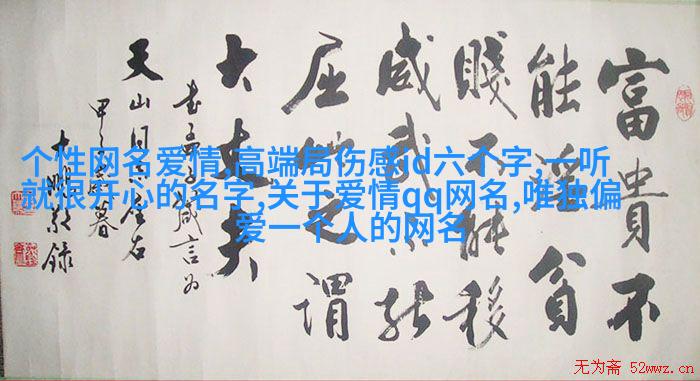 个性网名爱情,高端局伤感id六个字,一听
就很开心的名字,关于爱情qq网名,唯独偏
爱一个人的网名
富貴不
能淫貧
賤不能移
威武不能
屈此之謂
大丈夫
書孟子箴言为
天山同志座右
甲歲暮
大鵬錄
无为斋 52wwz.cn